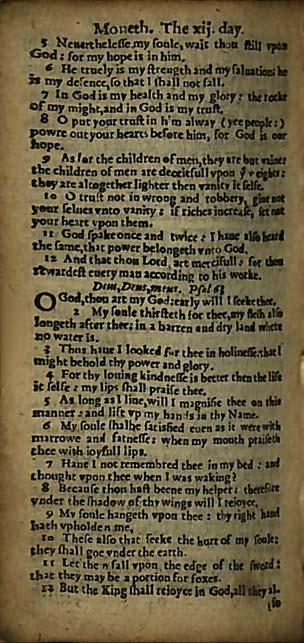 Moneth. The xij. day.
5 Neuerthelesse my soule, wait thou still vpon
God: for my hope is in him.
6 He truely is my strength and my saluation: he
is my defence, so that I shall not fall.
7 In God is my health and my glory: the rocke
of my might, and in God is my trust.
8 O put your trust in h'm alway (yee people:)
powre out your hearts before him, for God is our
hope.
9 As for the children of men, they are but vaine:
the children of men are deceitfull vpon ỹ weights:
they are altogether lighter then vanity it selfe.
10 O trust not in wrong and robbery, giue not
your selues vnto vanity: if riches increase, set not
your heart vpon them.
11 God spake once and twice: I haue also heard
the same, that power belongeth vnto God.
12 And that thou Lord, art mercifull: for thou
rewardest euery man according to his worke.
Deus, Deus, meus. Psal 63
O God, thou art my God: early will I seeke thee.
2 My soule thirsteth for thee, my flesh also
longeth after thee: in a barren and dry land where
no water is.
3 Thus haue I looked for thee in holinesse: that I
might behold thy power and glory.
4 For thy louing kindnesse is better then the life
it selfe: my lips shall praise thee.
5 As long as I liue, will I magnifie thee on this
manner: and lift vp my hands in thy Name.
6 My soule shalbe satisfied euen as it were with
marrowe and fatnesse: when my mouth praiseth
thee with ioyfull lips.
7 Haue I not remembred thee in my bed: and
thought vpon thee when I was waking?
8 Because thou hast beene my helper: therefore
vnder the shadow of thy wings will I reioyce.
9 My soule hangeth vpon thee: thy right hand
hath vpholden me,
10 These also that seeke the hurt of my soule:
they shall goe vnder the earth.
11 Let them fall vpon the edge of the sword:
that they may be a portion for foxes.
12 But the King shall reioyce in God, all they al-
so